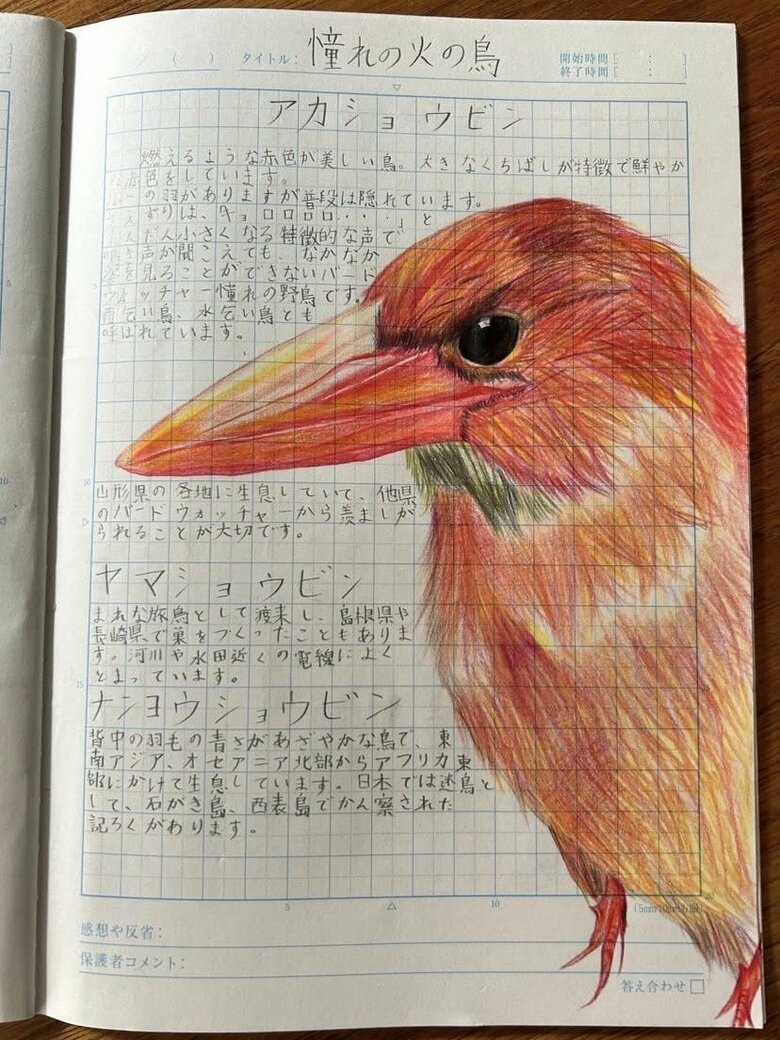 ( ) タイトル: 憧れの火の鳥
開始時間[ : ]
終了時間[ : ]
アカショウビン
燃えるような赤色が美しい鳥。大きなくちばしが特徴で鮮やか
な赤色をしています。
の羽がありますが普段は隠れています。
さえずりは、「キョロロロロ・・・」と
だんだん小さくなる特徴的な声で
鳴き声が聞こえても、なかなか
姿を見ることができないバード
ウォッチャー憧れの野鳥です。
雨乞い鳥、水乞い鳥とも
呼ばれています。
山形県の各地に生息していて、他県
のバードウォッチャーから羨ましが
られることが大切です。
ヤマショウビン
まれな旅鳥として渡来し、島根県や
長崎県で巣をつくったこともありま
す。河川や水田近くの電線によく
とまっています。
ナンヨウショウビン
背中の羽もの青さがあざやかな鳥で、東
南アジア、オセアニア北部からアフリカ東
部にかけて生息しています。日本では迷鳥と
して、石がき島、西表島でかん察された
記ろくがあります。
5
10
15
20
5
10
(5mm10mm方眼)
感想や反省:
保護者コメント:
答え合わせ